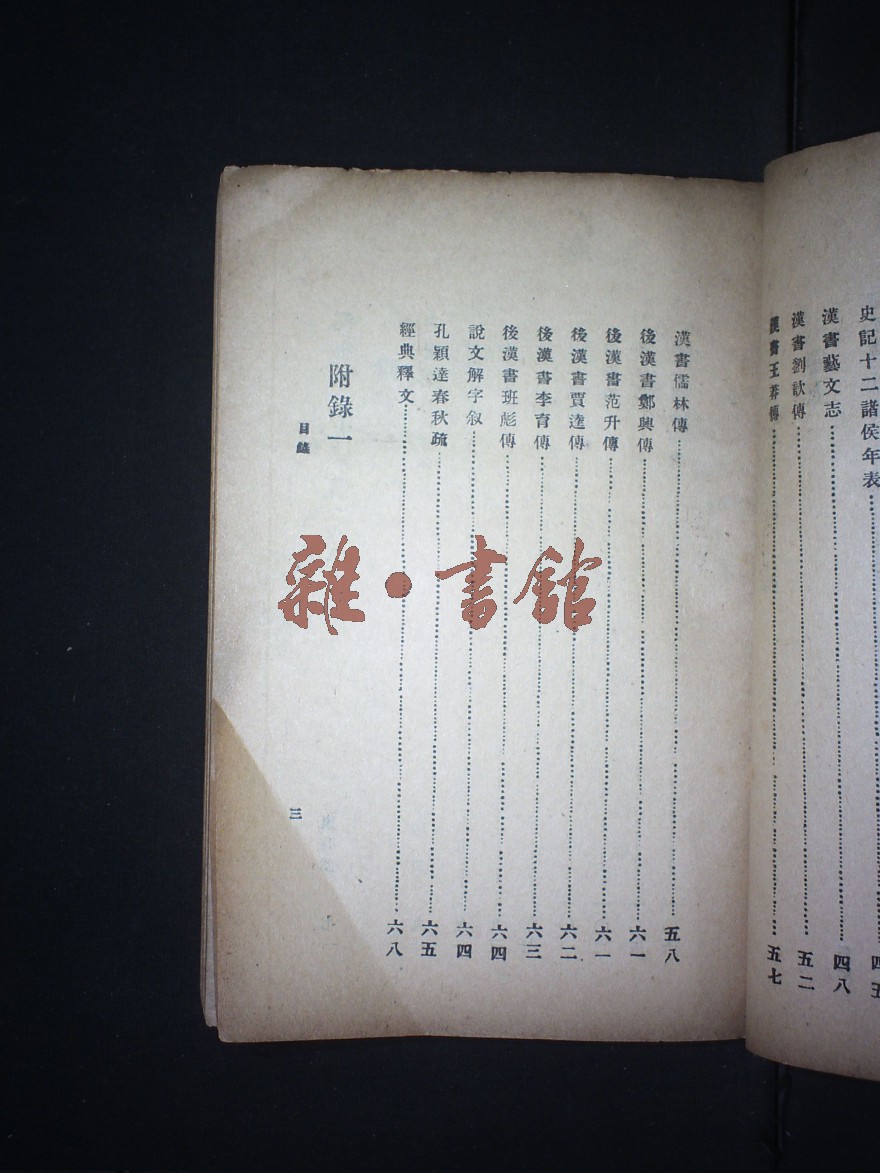 史記十二諸侯年表
漢書藝文志 四八
漢書劉歆傳 五二
漢書王莽傳 五七
漢書儒林傳 五八
後漢書鄭興傳 六一
後漢書范升傳 六一
後漢書賈逵傳 六二
後漢書李育傳 六三
後漢書班彪傳 六四
說文解字敘 六四
孔穎達春秋疏 六五
經典釋文 六八
附錄一
目錄
三
雜·書館